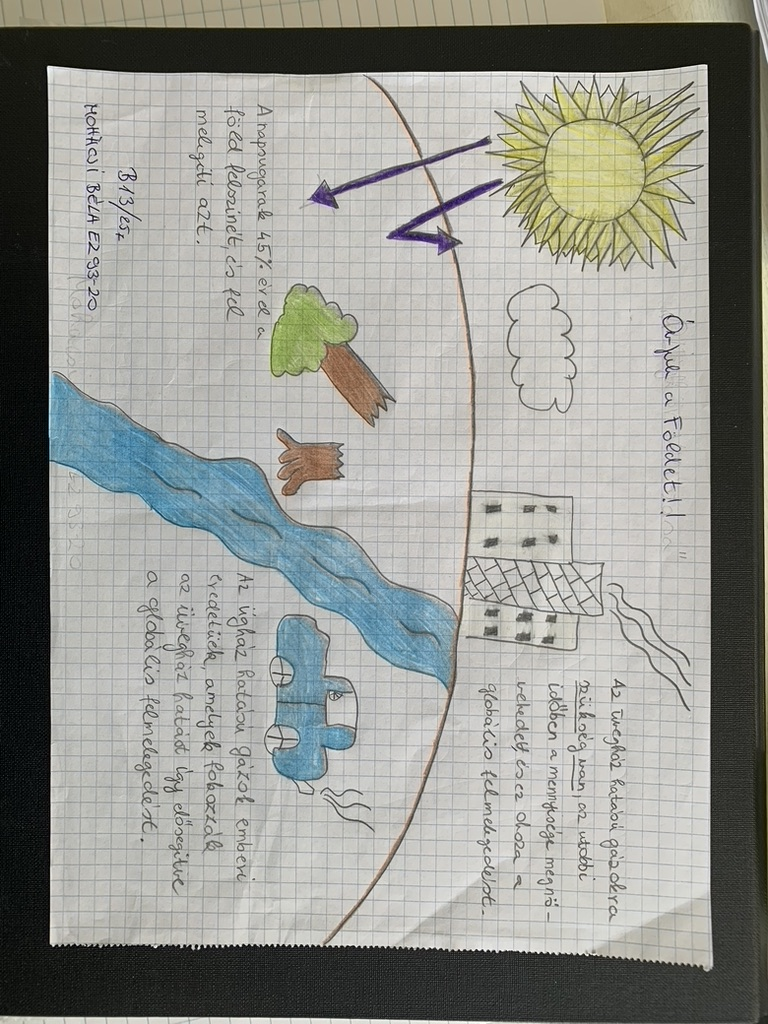 Óvjuk a Földet!!
Az üvegház hatású gázokra
szükség van, az utóbbi
időben a mennyisége megnö-
vekedett, és ez okoza a
globális felmelegedést.
A napsugarak 45% érel a
föld felszinét, és fel
melegiti azt.
Az ügház hatású gázok emberi
eredetüek, amelyek fokozzák
az üvegház hatást így elősegitve
a globális felmelegedést.
B13/25z
MOHÁCSI BÉLA EZ 93-20